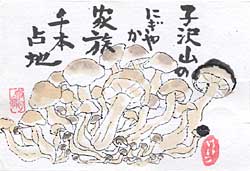 子沢山の
にぎやか
家族
千本
占地